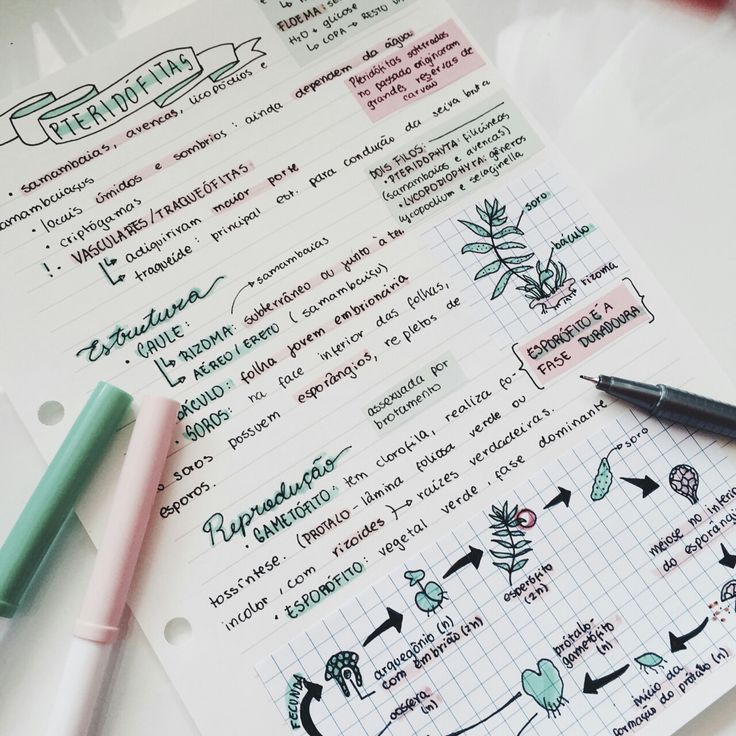 FLOEMA: se
H₂O + glicose
↳ COPA → RESTO
PTERIDÓFITAS
• samambaias, avencas, licopódios e
samambaiaçus
• locais úmidos e sombrios: ainda dependem da água
• criptógamas
!. VASCULARES/TRAQUEÓFITAS
↳ adiquiriram maior porte
↳ traqueíde: principal est. para condução da seiva bruta
Pteridófitas soterradas
no passado originaram
grandes reservas de
carvão
DOIS FILOS:
• PTERIDOPHYTA: filicíneas
(samambaias e avencas)
• LYCOPODIOPHYTA: gêneros
lycopodium e selaginella
soro
báculo
rizoma
Estrutura
• CAULE:
→ samambaias
↳ RIZOMA: subterrâneo ou junto à ter.
↳ AÉREO/ERETO (samambaiaçu)
BÁCULO: folha jovem embrionária
• SOROS: na face inferior das folhas,
soros possuem esporângios, repletos de
esporos.
ESPORÓFITO É A
FASE DURADOURA
assexuada por
brotamento
Reprodução
• GAMETÓFITO: tem clorofila, realiza fo-
tossíntese. (PROTALO - lâmina foliosa verde ou
incolor, com rizoides) → raízes verdadeiras.
• ESPORÓFITO: vegetal verde, fase dominante
soro
meiose no interi
do esporângi
esporófito
(2n)
arquegônio (n)
com embrião (2n)
FECUNDA
oosfera
(n)
prótalo-
gametófito
(n)
início da
formação do prótalo (n)